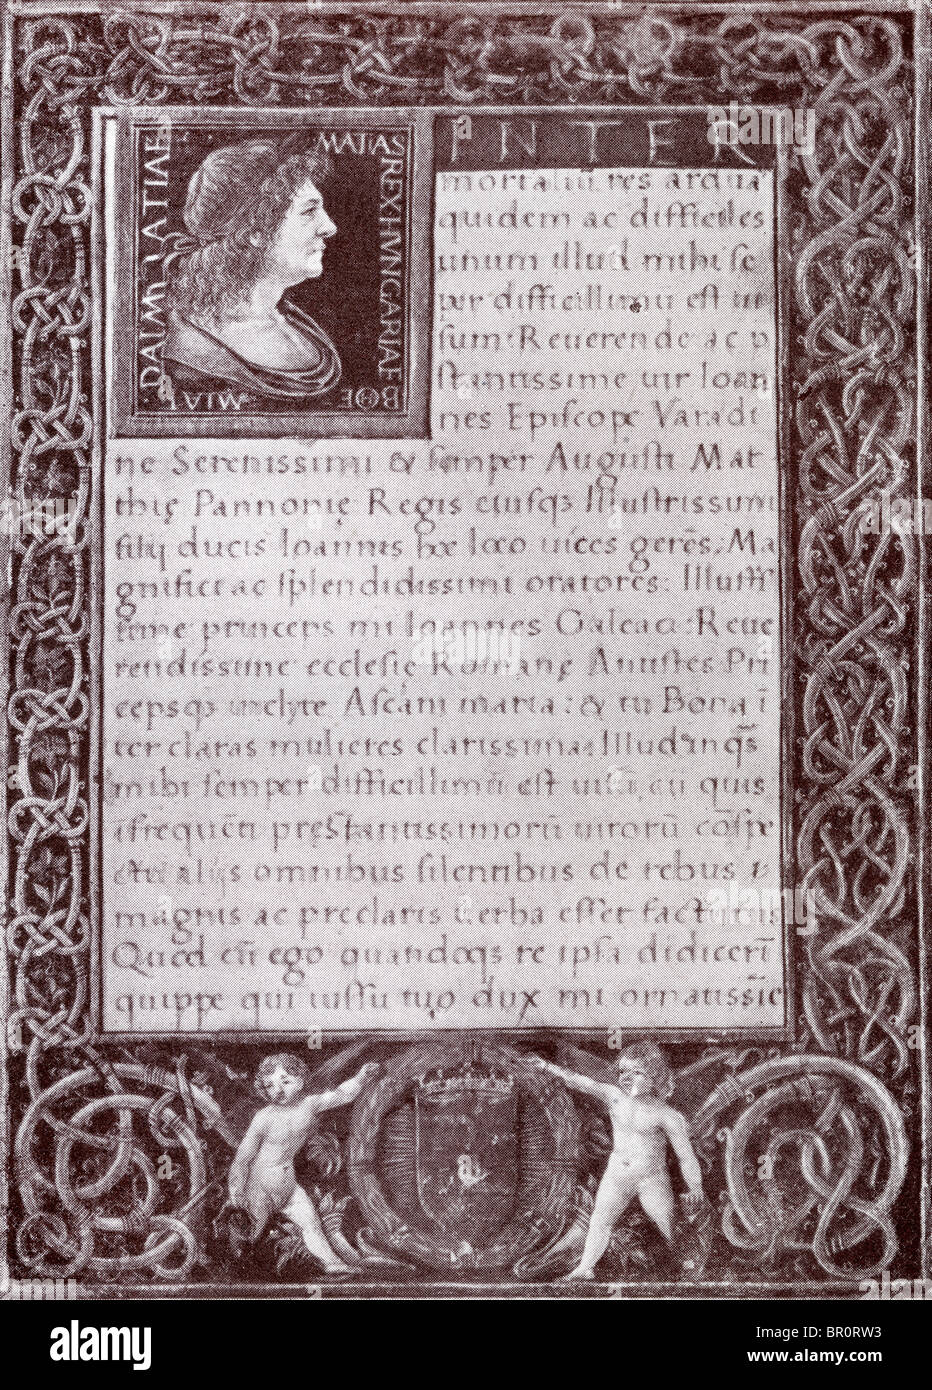 MATIAS REX HVNGARIAE BOE
MIAE DALMATIAE
INTER
mortaliū res ardua
quidem ac difficiles
unum illud mihi se
per difficillimū est ui
sum: Reuerende ac p
stantissime uir Ioan
nes Episcope Varadi
ne Serenissimi & semper Augusti Mat
thię Pannonię Regis eiusqȝ Illustrissimi
filij ducis Ioannis hoc loco uices gerēs: Ma
gnifici ac splendidissimi oratores: Illusts
sime princeps mi Ioannes Galeaci: Reue
rendissime ecclesię Romanę Antistes Pri
cepsqȝ inclyte Ascani maria: & tu Bona ī
ter claras mulieres clarissima: Illud inqs̄
mihi semper difficillimū est uisū, cū quis
ī frequēti pręstantissimorū uirorū cōspe
ctu alijs omnibus silentibus de rebus
magnis ac preclaris uerba esset facturus
Quod cū ego quandoqȝ re ipsa didicerī
quippe qui iussu tuo dux mi ornatissīe
alamy
Image ID: BR0RW3
www.alamy.com